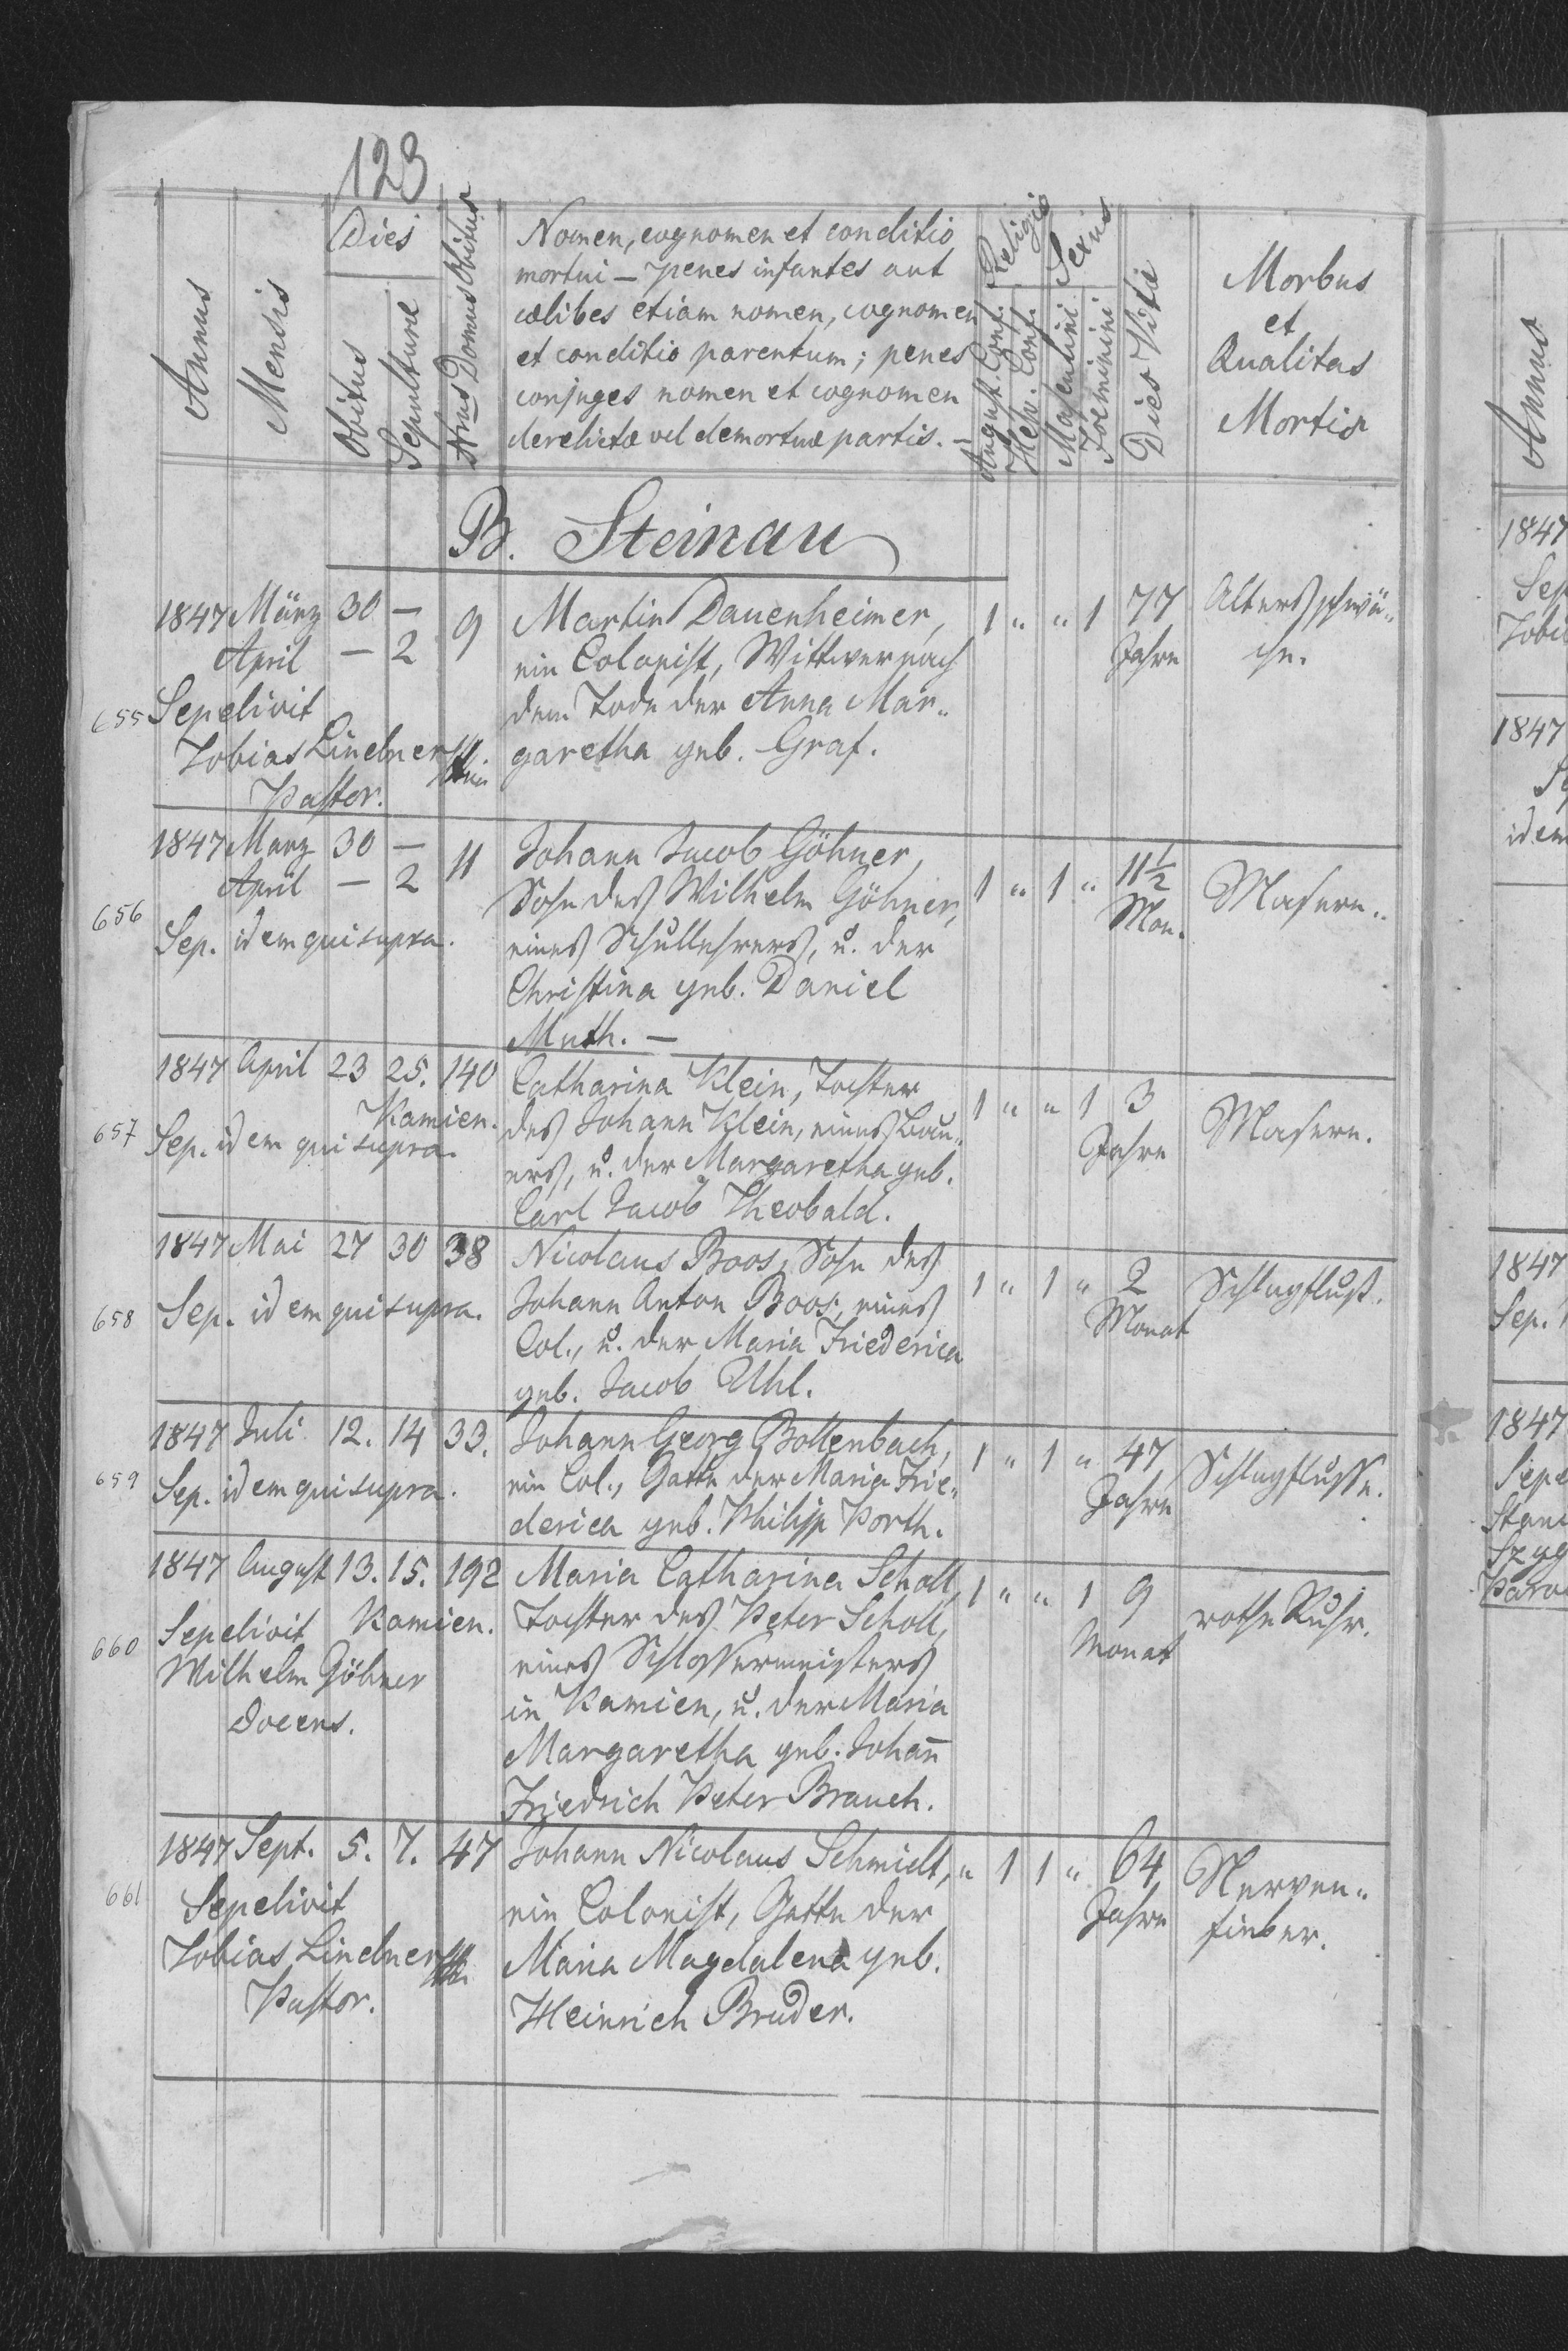 123
Annus
Mensis
Dies
Obitus
Sepulturæ
Nrus Domus Obitus
Nomen, cognomen et conditio
mortui — penes infantes aut
cælibes etiam nomen, cognomen
et conditio parentum; penes
conjuges nomen et cognomen
derelictæ vel demortuæ partis. —
Religio
August. Conf.
Helv. Conf.
Sexus
Masculini
Foeminini
Dies Vitæ
Morbus
et
Qualitas
Mortis
B. Steinau
1847 März 30 — 9 Martin Dauenheimer, 1 " " 1 77 Altersschwä„
April — 2 ein Colonist, Wittwer nach Jahre che.
655 Sepelivit dem Tode der Anna Mar„
Tobias Lindner garetha geb. Graf.
Pastor.
1847 März 30 — 11 Johann Jacob Göhner, 1 " 1 " 11½ Masern.
April — 2 Sohn des Wilhelm Göhner, Mon.
656 Sep. idem qui supra. eines Schullehrers, u. der
Christina geb. Daniel
Muth. —
1847 April 23 25. 140 Catharina Klein, Tochter 1 " " 1 3 Masern.
Kamien. des Johann Klein, eines Bau„ Jahre
657 Sep. idem qui supra. ers, u. der Margaretha geb.
Carl Jacob Theobald.
1847 Mai 27 30 38 Nicolaus Boos, Sohn des 1 " 1 " 2 Schlagfluß.
658 Sep. idem qui supra. Johann Anton Boos, eines Monat
Col., u. der Maria Friederica
geb. Jacob Uhl.
1847 Juli 12. 14 33. Johann Georg Bollenbach, 1 " 1 " 47 Schlagflusse.
659 Sep. idem qui supra. ein Col., Gatte der Maria Frie„ Jahre
derica geb. Philipp Porth.
1847 August 13. 15. 192 Maria Catharina Scholl, 1 " " 1 9 rothe Ruhr.
Sepelivit Kamien. Tochter des Peter Scholl, Monat
660 Wilhelm Göhner eines Schlossermeisters
Docens. in Kamien, u. der Maria
Margaretha geb. Johan̄
Friedrich Peter Brauch.
1847 Sept. 5. 7. 47 Johann Nicolaus Schmidt, " 1 1 " 64 Nerven„
661 Sepelivit ein Colonist, Gatte der Jahre fieber.
Tobias Lindner Maria Magdalena geb.
Pastor. Heinrich Bruder.
Annus
1847
1847
1847
Sep.
1847